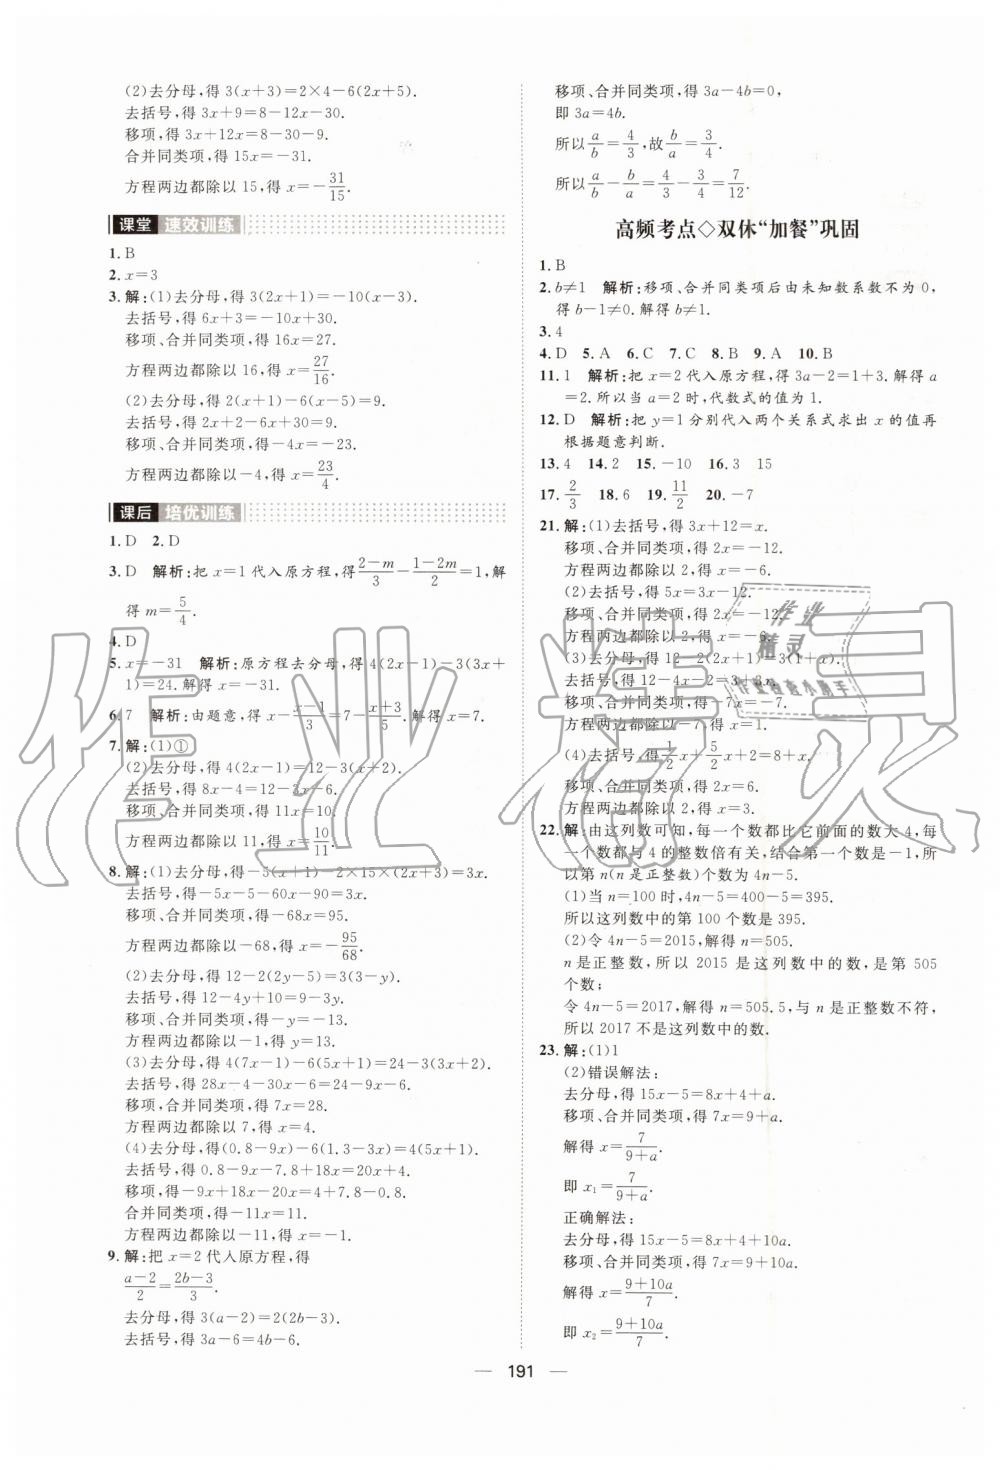 (2)去分母,得 3(x+3)=2×4-6(2x+5).
去括号,得 3x+9=8-12x-30.
移项,得 3x+12x=8-30-9.
合并同类项,得 15x=-31.
方程两边都除以 15,得 x=-31/15.
课堂 速效训练
1. B
2. x=3
3. 解:(1)去分母,得 3(2x+1)=-10(x-3).
去括号,得 6x+3=-10x+30.
移项、合并同类项,得 16x=27.
方程两边都除以 16,得 x=27/16.
(2)去分母,得 2(x+1)-6(x-5)=9.
去括号,得 2x+2-6x+30=9.
移项、合并同类项,得-4x=-23.
方程两边都除以-4,得 x=23/4.
课后 培优训练
1. D 2. D
3. D 解析:把 x=1 代入原方程,得 (2-m)/3-(1-2m)/2=1,解
得 m=5/4.
4. D
5. x=-31 解析:原方程去分母,得 4(2x-1)-3(3x+
1)=24.解得 x=-31.
6. 7 解析:由题意,得 x-(x-1)/3=7-(x+3)/5.解得 x=7.
7. 解:(1)①
(2)去分母,得 4(2x-1)=12-3(x+2).
去括号,得 8x-4=12-3x-6.
移项、合并同类项,得 11x=10.
方程两边都除以 11,得 x=10/11.
8. 解:(1)去分母,得-5(x+1)-2×15×(2x+3)=3x.
去括号,得-5x-5-60x-90=3x.
移项、合并同类项,得-68x=95.
方程两边都除以-68,得 x=-95/68.
(2)去分母,得 12-2(2y-5)=3(3-y).
去括号,得 12-4y+10=9-3y.
移项、合并同类项,得-y=-13.
方程两边都除以-1,得 y=13.
(3)去分母,得 4(7x-1)-6(5x+1)=24-3(3x+2).
去括号,得 28x-4-30x-6=24-9x-6.
移项、合并同类项,得 7x=28.
方程两边都除以 7,得 x=4.
(4)去分母,得(0.8-9x)-6(1.3-3x)=4(5x+1).
去括号,得 0.8-9x-7.8+18x=20x+4.
移项,得-9x+18x-20x=4+7.8-0.8.
合并同类项,得-11x=11.
方程两边都除以-11,得 x=-1.
9. 解:把 x=2 代入原方程,得
(a-2)/2=(2b-3)/3.
去分母,得 3(a-2)=2(2b-3).
去括号,得 3a-6=4b-6.
移项、合并同类项,得 3a-4b=0,
即 3a=4b.
所以 a/b=4/3,故 b/a=3/4.
所以 a/b-b/a=4/3-3/4=7/12.
高频考点◇双休“加餐”巩固
1. B
2. b≠1 解析:移项、合并同类项后由未知数系数不为 0,
得 b-1≠0.解得 b≠1.
3. 4
4. D 5. A 6. C 7. C 8. B 9. A 10. B
11. 1 解析:把 x=2 代入原方程,得 3a-2=1+3.解得 a
=2.所以当 a=2 时,代数式的值为 1.
12. D 解析:把 y=1 分别代入两个关系式求出 x 的值再
根据题意判断.
13. 4 14. 2 15. -10 16. 3 15
17. 2/3 18. 6 19. 11/2 20. -7
21. 解:(1)去括号,得 3x+12=x.
移项、合并同类项,得 2x=-12.
方程两边都除以 2,得 x=-6.
(2)去括号,得 5x=3(x-2).
移项、合并同类项,得 2x=-12.
方程两边都除以 2,得 x=-6.
(3)去分母,得 6-2(2x-1)=3(1+x).
去括号,得 6-4x+2=3+3x.
移项、合并同类项,得-7x=-7.
方程两边都除以-7,得 x=1.
(4)去括号,得 1/2 x+5/2 x+2=8+x.
移项、合并同类项,得 2x=6.
方程两边都除以 2,得 x=3.
22. 解:由这列数可知,每一个数都比它前面的数大 4,每
一个数都与 4 的整数倍有关,结合第一个数是-1,所
以第 n(n 是正整数)个数为 4n-5.
(1)当 n=100 时,4n-5=400-5=395.
所以这列数中的第 100 个数是 395.
(2)令 4n-5=2015,解得 n=505.
n 是正整数,所以 2015 是这列数中的数,是第 505
个数;
令 4n-5=2017,解得 n=505.5,与 n 是正整数不符,
所以 2017 不是这列数中的数.
23. 解:(1)1
(2)错误解法:
去分母,得 15x-5=8x+4+a.
移项、合并同类项,得 7x=9+a.
解得 x=7/(9+a).
即 x₁=7/(9+a).
正确解法:
去分母,得 15x-5=8x+4+10a.
移项、合并同类项,得 7x=9+10a.
解得 x=(9+10a)/7.
即 x₂=(9+10a)/7.
— 191 —
作业精灵
作业
精灵